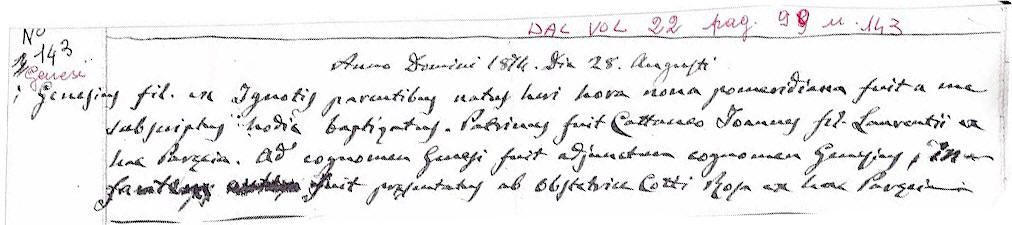 DAL VOL 22 pag. 99 n. 143
No
143
Genesi
Anno Domini 1874. Die 28. Augusti
Genesius fil. ex Ignotis parentibus natus heri hora nona pomeridiana fuit a me
subscriptus hodie baptizatus. Patrinus fuit Cattaneo Joannes fil. Laurentii ex
hac Paroecia. Ad cognomen Genesi fuit adjunctum cognomen Genesius, In=
fuit praesentatus ab Obstetrice Cotti Rosa ex hac Paroecia